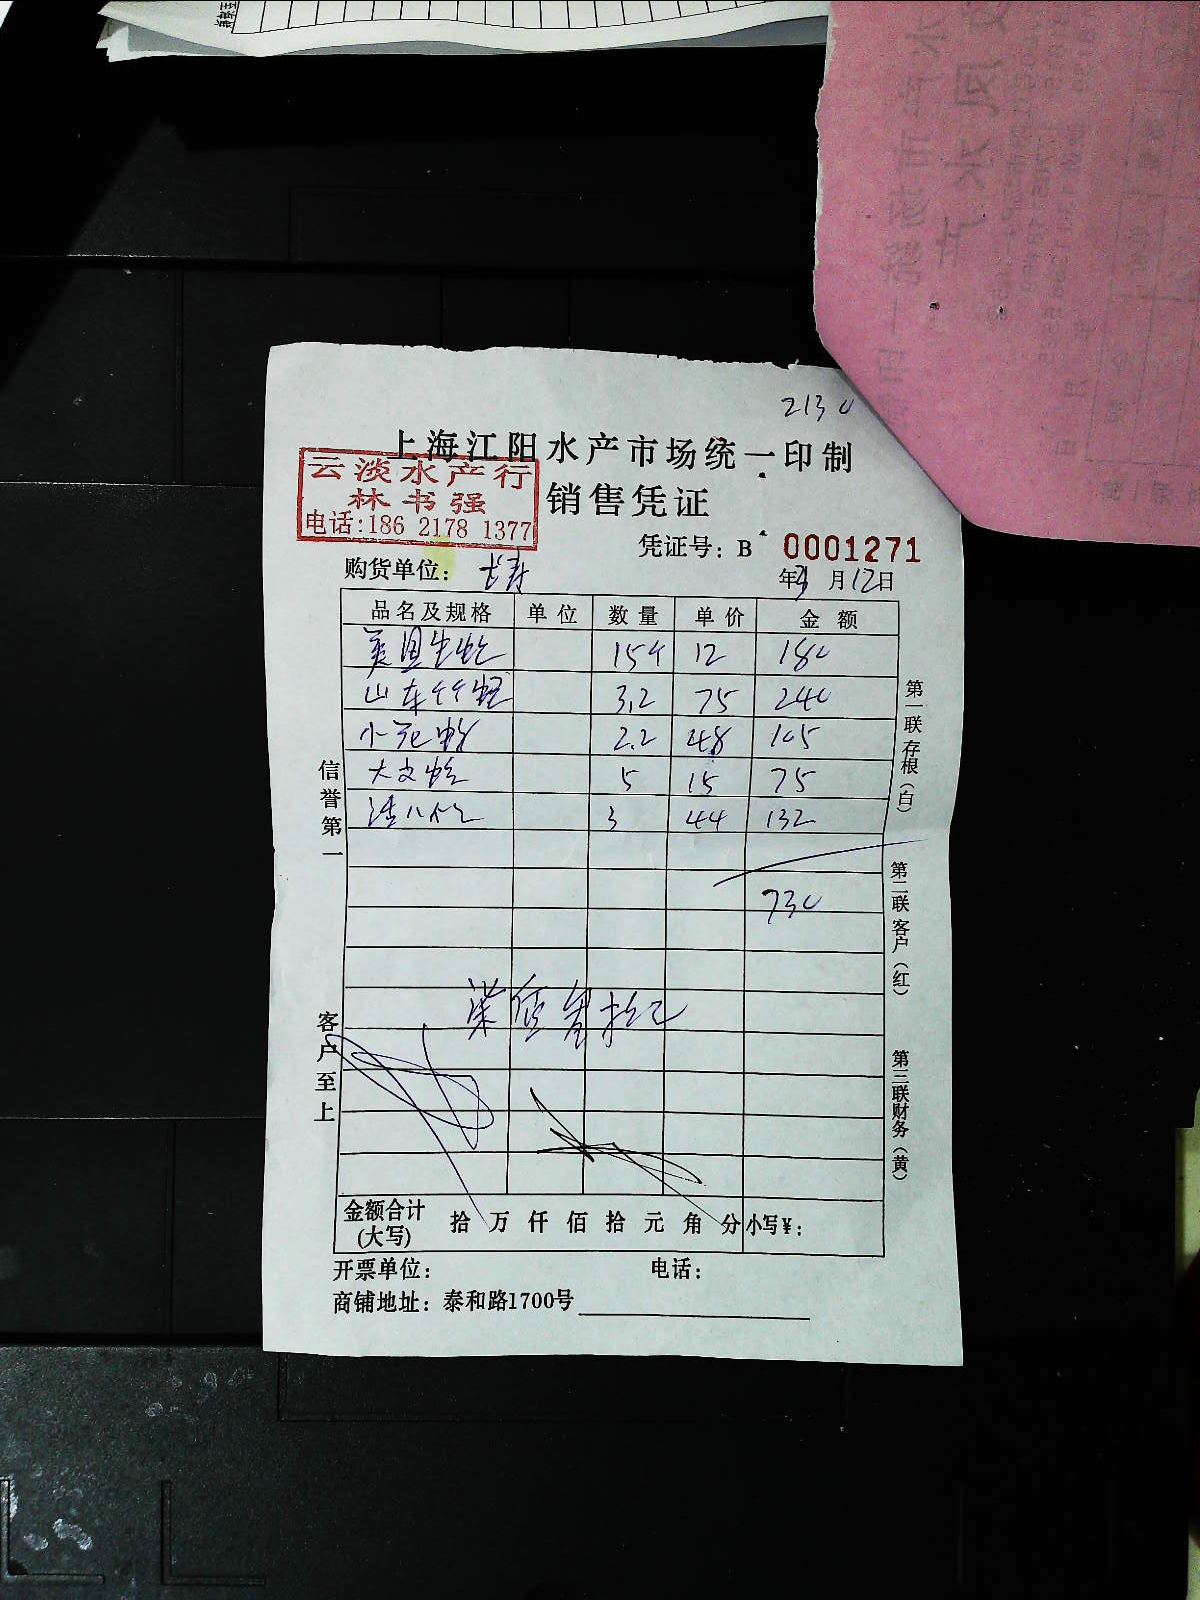 2130
上海江阳水产市场统一印制
云淡水产行
林书强
电话:186 2178 1377
销售凭证
凭证号: B 0001271
购货单位:
年3月12日
品名及规格 单位 数量 单价 金额
美国生蚝 15个 12 180
山东竹蛏 3.2 75 240
小花蛤 2.2 48 105
大文蛤 5 15 75
3 44 132
730
信誉第一
客户至上
第一联存根(白)
第二联客户(红)
第三联财务(黄)
金额合计(大写) 拾 万 仟 佰 拾 元 角 分 小写¥:
开票单位: 电话:
商铺地址: 泰和路1700号